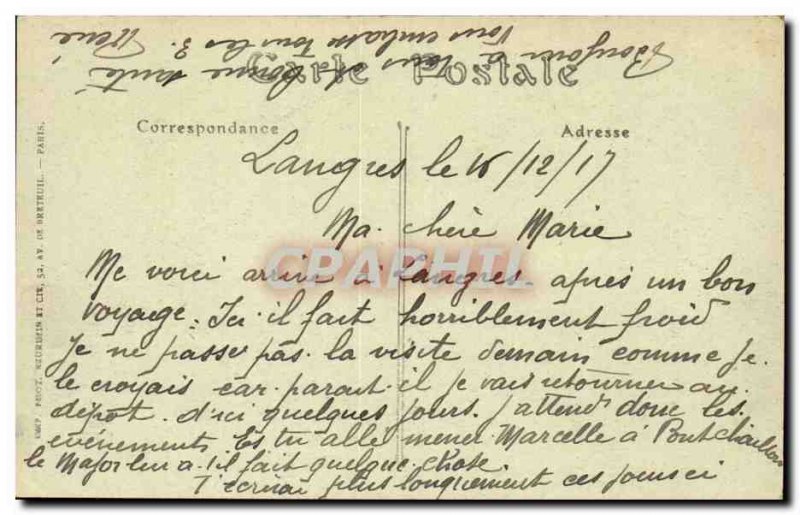 Carte Postale
Correspondance
Adresse
Langres le 16/12/17
Ma chère Marie
Me voici arrivé à Langres après un bon
voyage. Ici il fait horriblement froid
Je ne passe pas la visite demain comme Je
le croyais car parait il je vais retourner au
dépot d'ici quelques jours. J'attend donc les
événements Es tu allé mener Marcelle à Pontchaillou
le Major leu a-t-il fait quelque chose
T'ecrirai plus longuement ces jours ci
Bonjour à tous et bonne santé
Vous embrasse tous les 3. René
NEURDEIN ET CIE, 52, AV. DE BRETEUIL. — PARIS.
CPAPHIL